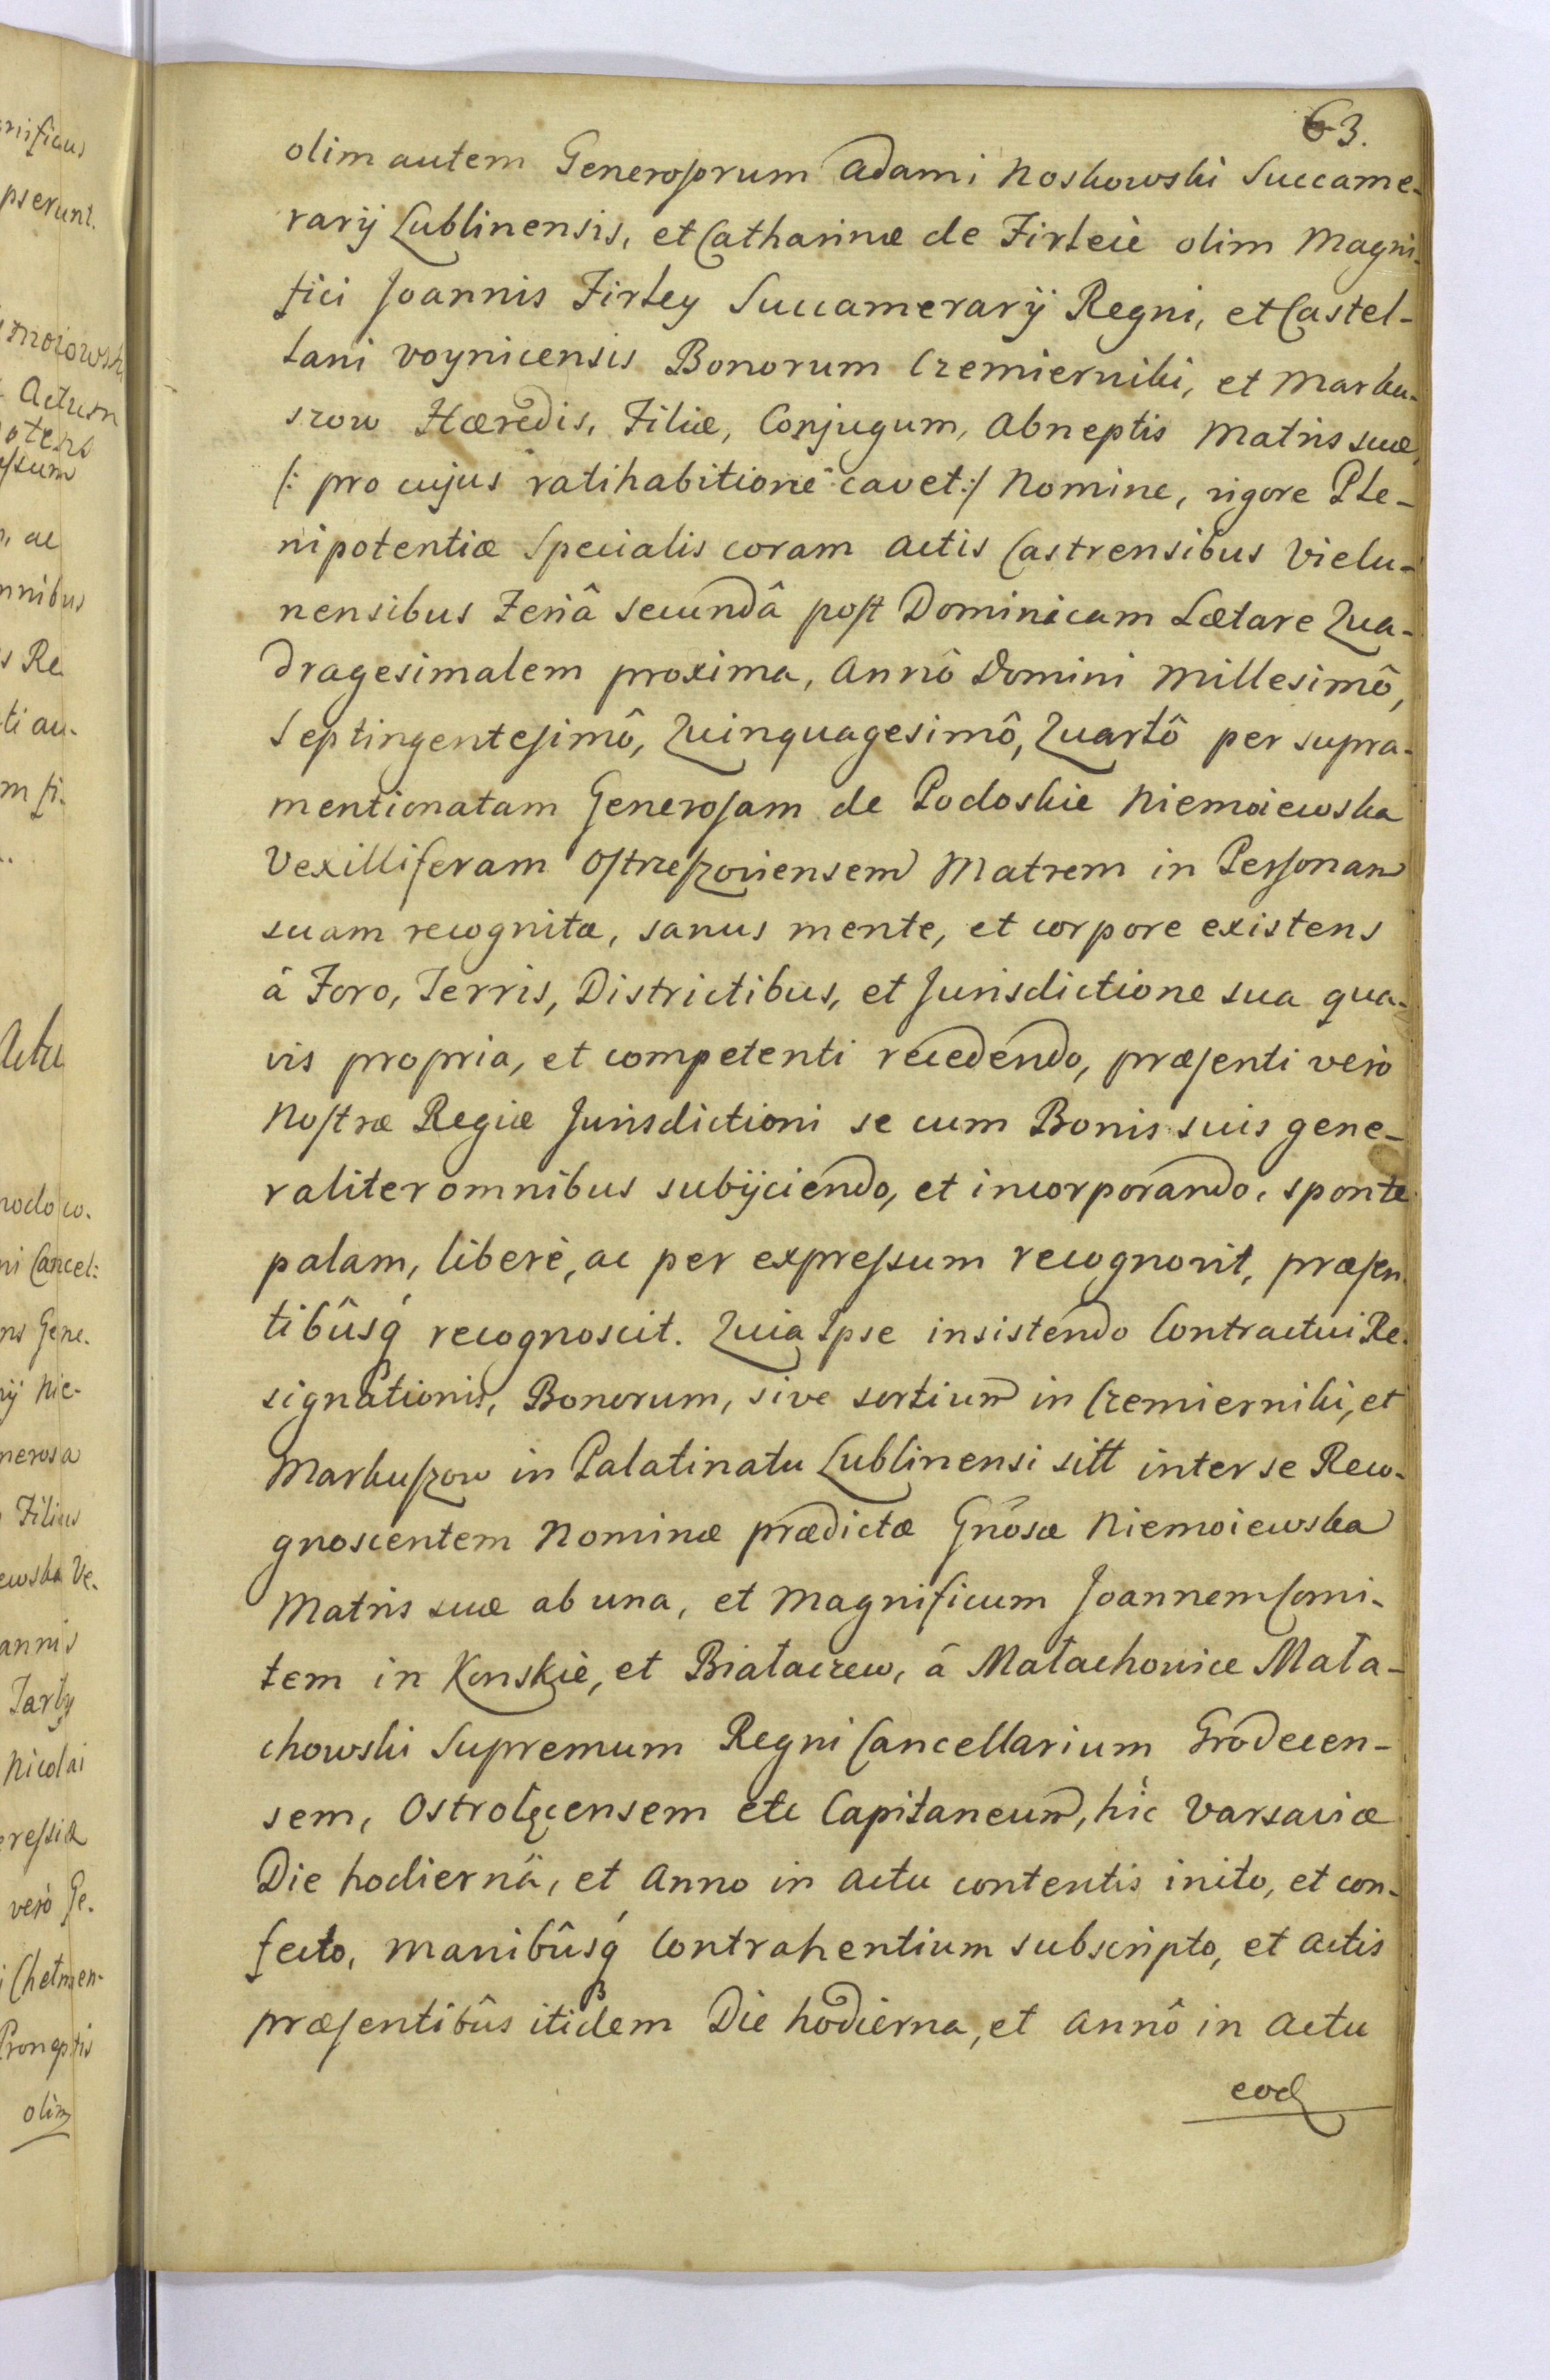 63.
olim autem Generosorum Adami Noskowski Succame-
rarij Lublinensis, et Catharinæ de Firleiè olim Magni-
fici Joannis Firley Succamerarij Regni, et Castel-
lani Voynicensis Bonorum Czemierniki, et Marku-
szow Hæredis, Filiæ, Conjugum, Abneptis Matris suæ,
/: pro cujus ratihabitione cavet :/ Nomine, vigore Ple-
nipotentiæ Specialis coram Actis Castrensibus Vielu-
nensibus Feriâ secundâ post Dominicam Lætare Qua-
dragesimalem proxima, Annô Domini Millesimô,
Septingentesimô, Quinquagesimô, Quartô per supra-
mentionatam Generosam de Podoskie Niemoiewska
Vexilliferam Ostrzeszoviensem Matrem in Personam
suam recognitæ, sanus mente, et corpore existens
à Foro, Terris, Districtibus, et Jurisdictione sua qua-
vis propria, et competenti recedendo, præsenti verò
Nostræ Regiæ Jurisdictioni se cum Bonis suis gene-
raliter omnibus subijciendo, et incorporando, sponte
palam, liberè, ac per expressum recognovit, præsen-
tibûsq́ recognoscit. Quia Ipse insistendo Contractui Re-
signationis, Bonorum, sive sortium in Czemierniki, et
Markuszow in Palatinatu Lublinensi sitt inter se Reco-
gnoscentem Nominæ prædictæ Gñosæ Niemoiewska
Matris suæ ab una, et Magnificum Joannem Comi-
tem in Konskiè, et Białaczew, á Małachowice Mała-
chowski Supremum Regni Cancellarium Grodecen-
sem, Ostrołęcensem etc Capitaneum, hîc Varsaviæ
Die hodiernâ, et Anno in Actu contentis inito, et con-
fecto, manibûsq́ Contrahentium subscripto, et Actis
præsentibûs itidem Die hodierna, et Annô in Actu
eod
mificus
pserunt.
moiowsk
Actum
otens
essum
, ac
nnibus
s Re
ti au-
m si-
Actu
modo co-
ni Cancel:
ns Gene-
ij Nie-
nerosa
Filius
ewska Ve-
annis
Tarły
Nicolai
ressiæ
verò Ge-
i Chelmen-
Proneptis
olim